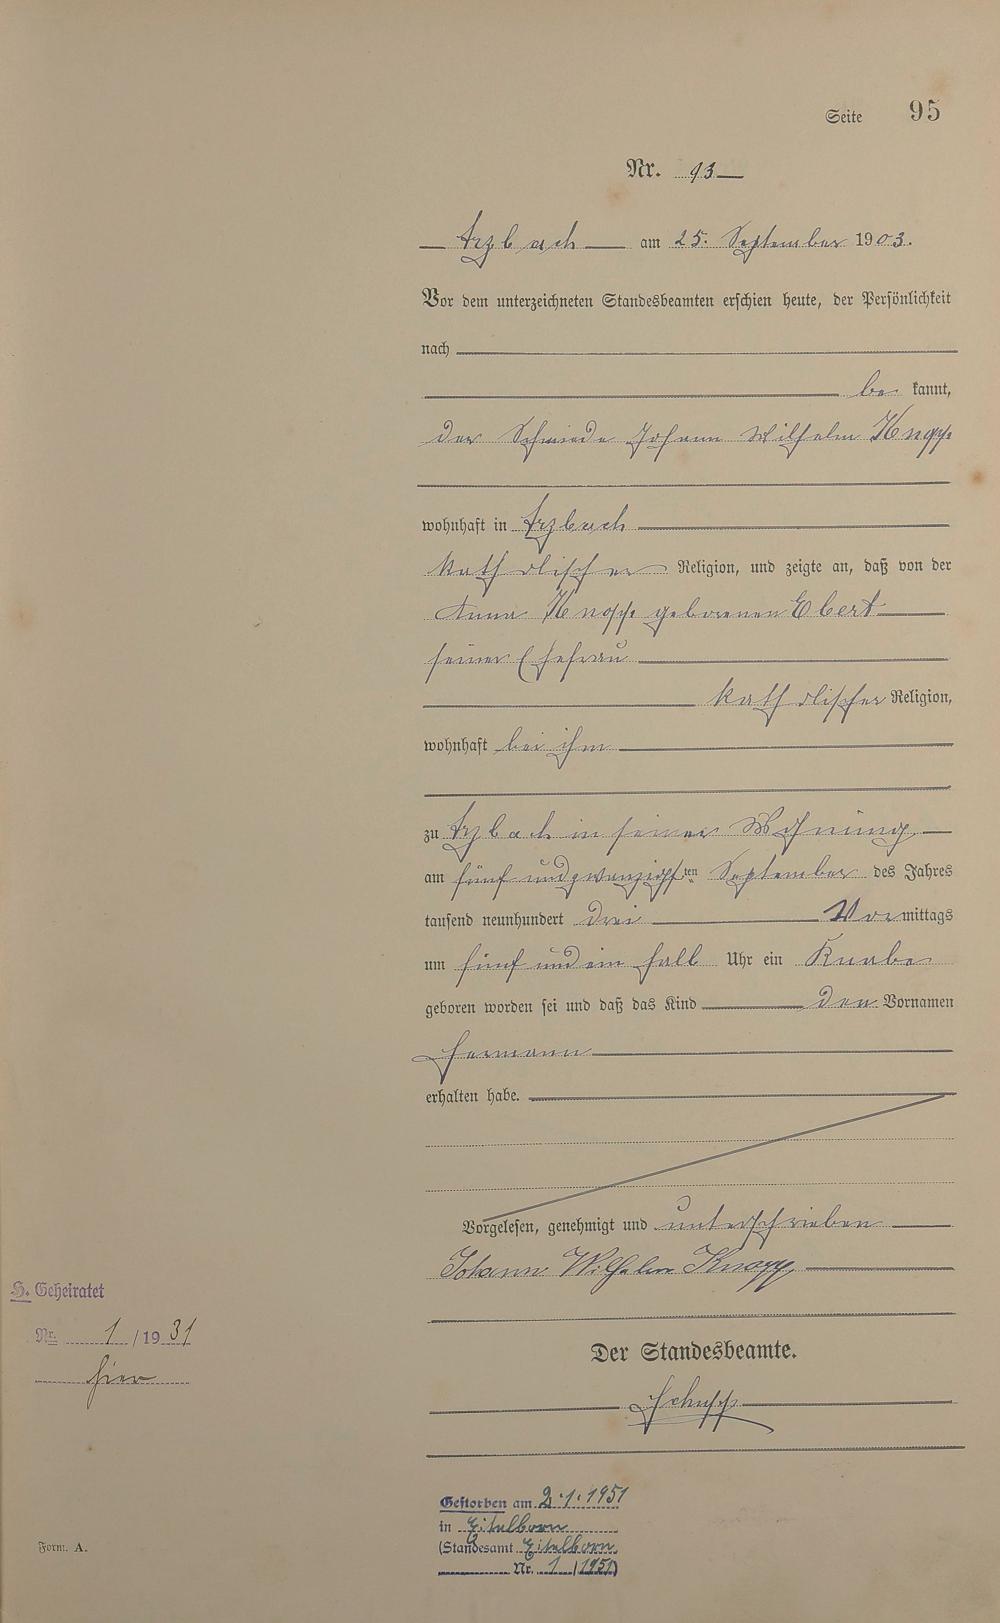 Seite 95
Nr. 93
Arzbach am 25. September 1903.
Vor dem unterzeichneten Standesbeamten erschien heute, der Persönlichkeit
nach
be kannt,
der Schmiede Johann Wilhelm Knopp
wohnhaft in Arzbach
katholischer Religion, und zeigte an, daß von der
Anna Knopp geborenen Ebert
seiner Ehefrau
katholischer Religion,
wohnhaft bei ihm
zu Arzbach in seiner Wohnung
am fünf und zwanzigsten September des Jahres
tausend neunhundert drei Vormittags
um fünf und ein halb Uhr ein Knabe
geboren worden sei und daß das Kind den Vornamen
Hermann
erhalten habe.
Vorgelesen, genehmigt und unterschrieben
Johann Wilhelm Knopp
H. Geheiratet
Nr. 1 / 1931
hier
Der Standesbeamte.
Gestorben am 2.1.1951
in Eitelborn
(Standesamt Eitelborn
Nr. 1 / 1951)
Form. A.